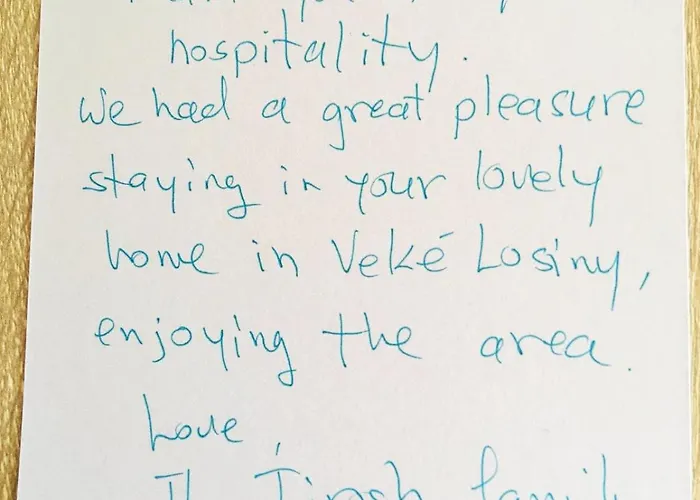 hospitality.
We had a great pleasure
staying in your lovely
home in Veké Losiny,
enjoying the area.
Love,
family